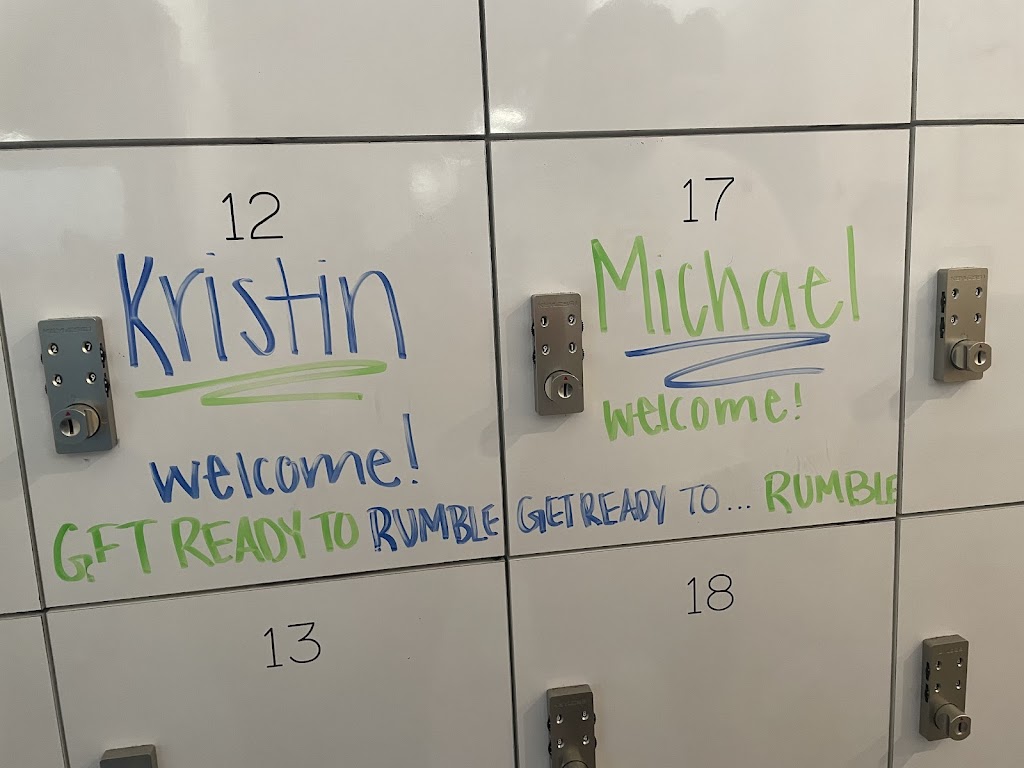 12
Kristin
welcome!
GET READY TO RUMBLE
17
Michael
welcome!
GET READY TO... RUMBLE
13
18